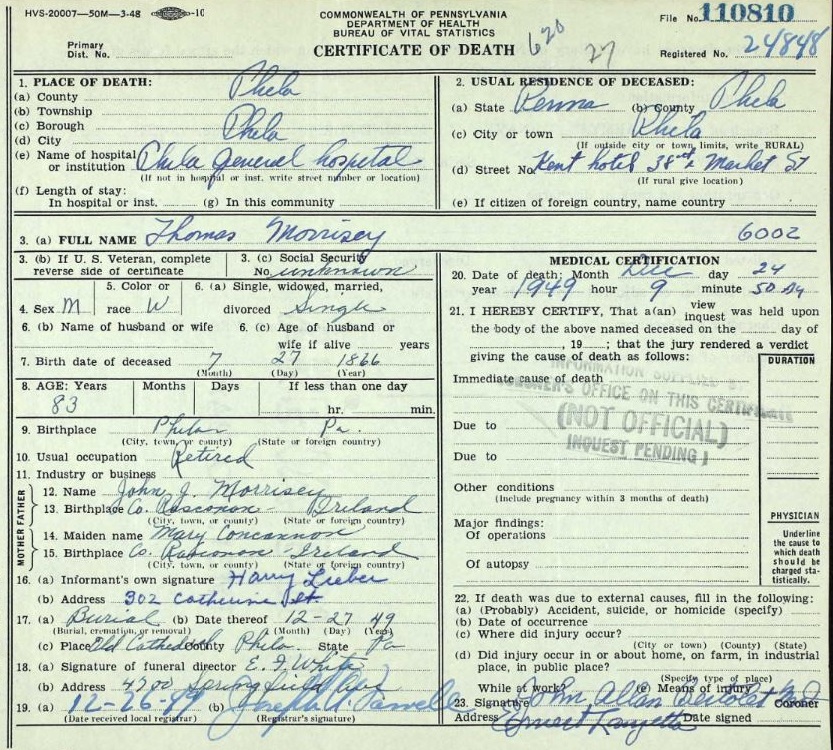 HVS-20007—50M—3-48 -10
COMMONWEALTH OF PENNSYLVANIA
DEPARTMENT OF HEALTH
BUREAU OF VITAL STATISTICS
CERTIFICATE OF DEATH
620
27
File No. 110810
Primary
Dist. No.
Registered No. 24848
1. PLACE OF DEATH:
(a) County Phila
(b) Township
(c) Borough Phila
(d) City
(e) Name of hospital
or institution Phila General hospital
(If not in hospital or inst. write street number or location)
(f) Length of stay:
In hospital or inst. (g) In this community
2. USUAL RESIDENCE OF DECEASED:
(a) State Penna (b) County Phila
(c) City or town Phila
(If outside city or town limits, write RURAL)
(d) Street No. Kent hotel 38th & Market St
(If rural give location)
(e) If citizen of foreign country, name country
3. (a) FULL NAME Thomas Morrisey 6002
3. (b) If U. S. Veteran, complete
reverse side of certificate
3. (c) Social Security
No. unknown
4. Sex M
5. Color or
race W
6. (a) Single, widowed, married,
divorced Single
6. (b) Name of husband or wife
6. (c) Age of husband or
wife if alive years
7. Birth date of deceased 7 27 1866
(Month) (Day) (Year)
8. AGE: Years Months Days If less than one day
83 hr. min.
9. Birthplace Phila Pa.
(City, town, or county) (State or foreign country)
10. Usual occupation Retired
11. Industry or business
FATHER
12. Name John J. Morrisey
13. Birthplace Co. Roscomon - Ireland
(City, town, or county) (State or foreign country)
MOTHER
14. Maiden name Mary Concannon
15. Birthplace Co. - Ireland
(City, town, or county) (State or foreign country)
16. (a) Informant's own signature Harry Lieber
(b) Address 302 Catherine St.
17. (a) Burial (b) Date thereof 12-27 49
(Burial, cremation, or removal) (Month) (Day) (Year)
(c) Place Old Cathedral County Phila. State Pa
18. (a) Signature of funeral director E. J. White
(b) Address 4700 Springfield Ave
19. (a) 12-26-49 (b) Joseph A.
(Date received local registrar) (Registrar's signature)
MEDICAL CERTIFICATION
20. Date of death: Month Dec day 24
year 1949 hour 9 minute 50
21. I HEREBY CERTIFY, That a(an) view inquest was held upon
the body of the above named deceased on the day of
, 19 ; that the jury rendered a verdict
giving the cause of death as follows:
DURATION
Immediate cause of death
INFORMATION SUPPLIED BY
CORONER'S OFFICE ON THIS CERTIFICATE
(NOT OFFICIAL)
INQUEST PENDING
Due to
Due to
Other conditions
(Include pregnancy within 3 months of death)
Major findings:
Of operations
Of autopsy
PHYSICIAN
Underline
the cause to
which death
should be
charged sta-
tistically.
22. If death was due to external causes, fill in the following:
(a) (Probably) Accident, suicide, or homicide (specify)
(b) Date of occurrence
(c) Where did injury occur?
(City or town) (County) (State)
(d) Did injury occur in or about home, on farm, in industrial
place, in public place?
(Specify type of place)
While at work? (e) Means of injury
23. Signature John Allan M.D. Coroner
Address Ernest Date signed